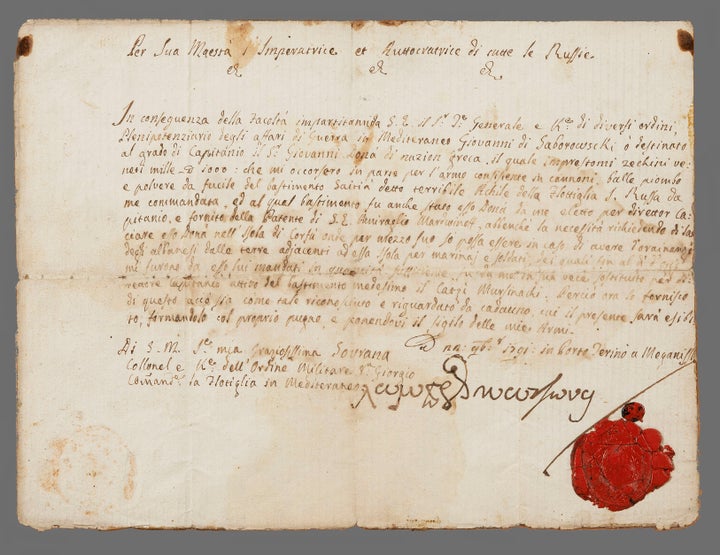 Per Sua Maestà l'Imperatrice et Auttocratrice di tutte le Russie
&
&
&
In conseguenza della Facoltà impartitami da S. E. il Sr. Te. Generale e Kr. di diversi ordini,
Plenipotenziario degli affari di Guerra in Mediteraneo Giovanni di Saborowschi ò destinato
al grado di Capitanio il Sr. Giovanni Donà di nazion greca. il quale imprestomi zechini ve-
neti mille N. 1000: che mi occorsero in parte per l'armo consistente in cannoni, balle piombo
e polvere da fucile del bastimento Saitia detto terribile Achile della Flotiglia I. Russa da
me commandata, ed al qual bastimento fu anche stato esso Donà da me eletto per director Ca-
pitanio, e fornito della Patente di S. E. Amiraglio Mardwinof, allenchè la necesità richiedendo di las-
ciare esso Donà nell' Isola di Corfù onde per mezzo suo si possa essere in caso di avere
degli albanesi dalle terre adjacenti ad essa Isola per marinaj e soldati, dei quali sin al dì d'oggi
mi furono da esso lui mandati in quantità sufficiente, fu da me in sua vece sostituito per di-
retore Capitaneo attivo del bastimento medesimo il Catgi Mursinachi. Perciò ora lo fornisco
di questo acciò sia come tale riconosciuto e riguardato da cadauno, cui il presente sarà esibi-
to, formandolo col proprio pugno, e ponendovi il sigilo delle mie Armi.
Di S. M. I. mia Graziosissima Sovrana
Collonel e Kr. dell'Ordine Militare Sn. Giorgio
Comandte. la Flotiglia in Mediteraneo
Dat: 9br. 1791: in Porto
λαμπρος